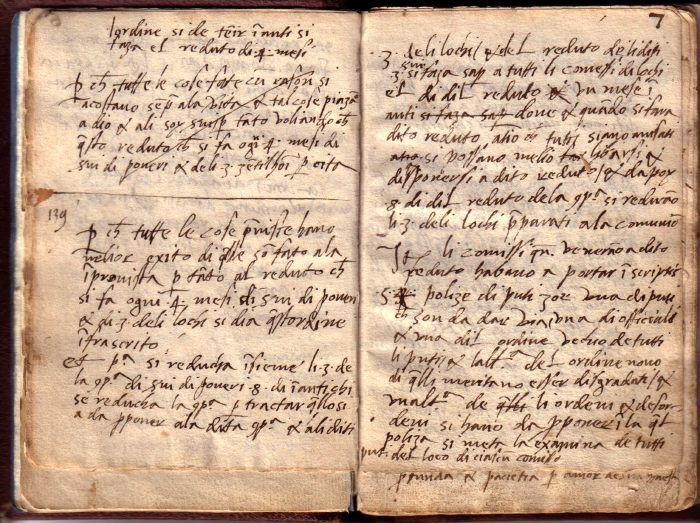 lordine si de tēir īanti si
taza el reduto di .4. mesi
p ch tutte le cose fate cū rasōn si
acostano sēp ala et tal cose piazā
a dio et ali soy p tato ch
q̄sto reduto ch si fa ogni .4. mesi di
sui di poueri et deli .3. p cita
139
p ch tutte le cose p̄uiste hano
melior exito di q̄lle sō fato ala
īprouista p tāto al reduto ch
si fa ogni .4. mesi di sui di poueri
et li .3. deli lochi si dia q̄sto ordine
īfrascrito
et pª si reducha īsieme li .3. de
la gpª di sui di poueri .8. di īanti chi
se reducha la gpª p tractar q̄llo si
a da pponer ala dita gpª et ali diti
7
.3. deli lochi et del reduto deli diti
.3. si faza sap a tutti li comessi di lochi
el di dil reduto vn mese ī
anti doue et quādo si fara
dito reduto atio ch tutti siano
si possano melio et
disponersi a dito reduto et da poy
.8. di dil reduto dela gpª si redurāo
li .3. deli lochi pparati a la comuniō
Itē li comissi qn̄ venerāo a dito
reduto habano a portar ī scriptis
polize di puti zoe vna di puti
son da dar via vna di officiali
et vna dil ordine vechio de tutti
li puti et laltª del ordine nouo
di q̄lli meritano esser disgradati et
vnaltª de li ordeni et desor
deni si hano da pponer ī la q̄l
poliza si meta la examina de tutti
puti del loco di ciascū comisso
et pacietia p amor